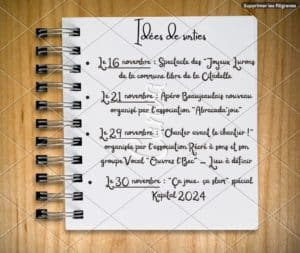 Supprimer les filigranes
Idées de sorties
Le 16 novembre : Spectacle des "Joyeux Lurons
de la commune libre de la Citadelle
Le 21 novembre : Apéro Beaujaulais nouveau
organisé par l'association "Abracada'joie"
Le 29 novembre : "Chanter avant le chantier !"
organisée par l'association Récré à sons et son
groupe Vocal "Ouvres l'Bec" ... Lieu à définir
Le 30 novembre : "Ça joue, ça slam" spécial
Kapital 2024